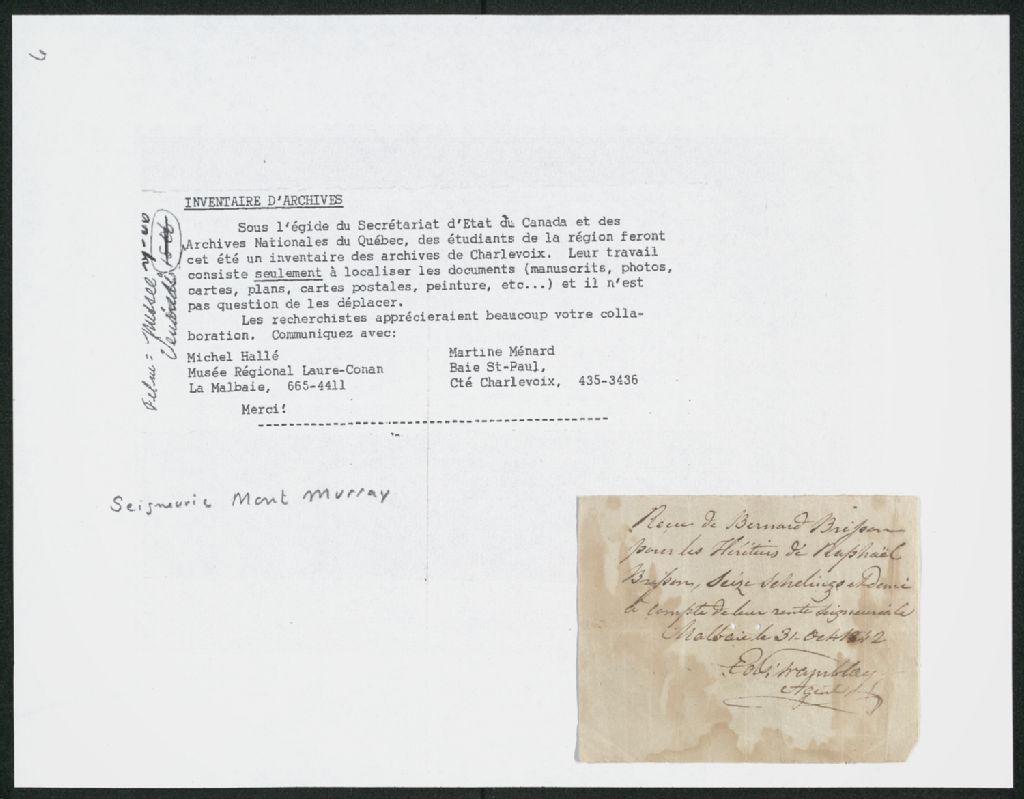 6
INVENTAIRE D'ARCHIVES
Sous l'égide du Secrétariat d'Etat du Canada et des
Archives Nationales du Québec, des étudiants de la région feront
cet été un inventaire des archives de Charlevoix. Leur travail
consiste seulement à localiser les documents (manuscrits, photos,
cartes, plans, cartes postales, peinture, etc...) et il n'est
pas question de les déplacer.
Les recherchistes apprécieraient beaucoup votre colla-
boration. Communiquez avec:
Michel Hallé
Musée Régional Laure-Conan
La Malbaie, 665-4411
Martine Ménard
Baie St-Paul,
Cté Charlevoix, 435-3436
Merci!
Musée
Vendredi
Seigneurie Mont Murray
Recu de Bernard Brisson
pour les Héritiers de Raphaël
Brisson, Seize Schelings et Demi
à compte de leur rente seigneuriale
Malbaie le 31 Oct 1842
Tremblay
Agent